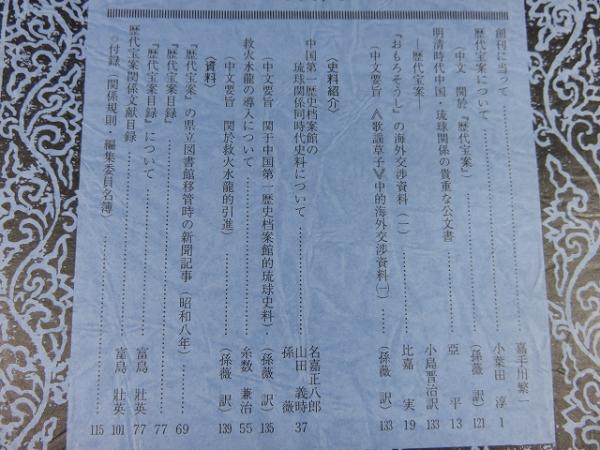 創刊に当って………嘉手川繁一
歴代宝案について………小葉田 淳 1
（中文 関於『歴代宝案』）………（孫薇 訳）121
明清時代中国・琉球関係の貴重な公文書
―歴代宝案―………亞 平 13
小島晋治訳 133
『おもろそうし』の海外交渉資料（一）………比嘉 実 19
（中文要旨 ≪歌謡草子≫中的海外交渉資料(一)）………（孫薇 訳）133
〈史料紹介〉
中国第一歴史档案館の
琉球関係同時代史料について………名嘉正八郎
山田 義時 37
孫 薇
（中文要旨 関于中国第一歴史档案館的琉球史料）………（孫薇 訳）135
救火水龍の導入について………糸数 兼治 55
（中文要旨 関於救火水龍的引進）………（孫薇 訳）139
〈資料〉
『歴代宝案』の県立図書館移管時の新聞記事（昭和八年）………69
『歴代宝案目録』………77
『歴代宝案目録』について………富島 壯英 77
歴代宝案関係文献目録………富島 壯英 101
○付録（関係規則・編集委員名簿）………115